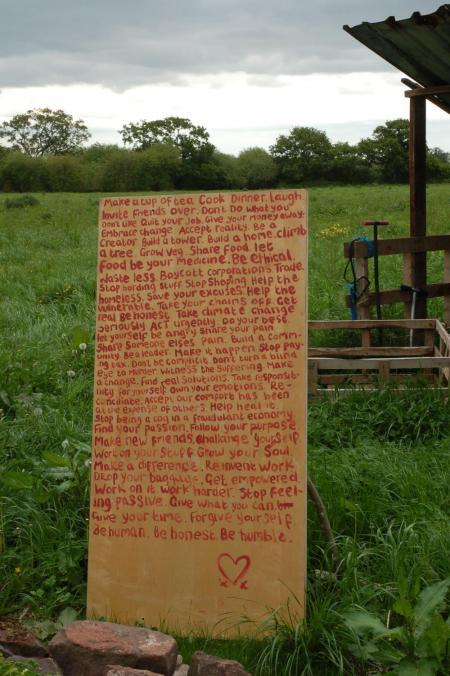 Make a cup of tea Cook Dinner. Laugh.
Invite friends over. Dont Do what you
Dont Like Quit your Job. Give your money away.
Embrace change. Accept reality. Be a
Creator Build a tower. Build a home. climb
a tree Grow veg. Share food let
food be your medicine. Be Ethical.
Waste less. Boycott corporations. Trade.
Stop hording Stuff Stop Shoping. Help the
homeless. Save your excuses. Help the
vulnerable. Take your chains off. Get
real. Be honest. Take climate change
Seriously. ACT urgently. Do your best.
Let yourself be angry Share your pain
Share Someone elses Pain. Build a comm-
unity. Be a leader. Make it happen Stop pay-
ing tax. Dont be complicit dont turn a blind
eye to Murder. Witness the suffering. Make
a change. Find real solutions. Take responsib-
ility for yourself own your emotions. Re-
conciliate. Accept our comfort has been
at the expense of others. Help heal it.
Stop being a cog in a fraudulant economy
Find your passion. Follow your purpose
Make new friends. Challange yourself
Work on your Stuff. Grow your Soul.
Make a difference. Reinvent Work
Drop your baggage. Get empowered.
Work on it work harder. Stop feel-
ing passive. Give what you can.
Give your time. Forgive yourself
de human. Be honest. Be humble.